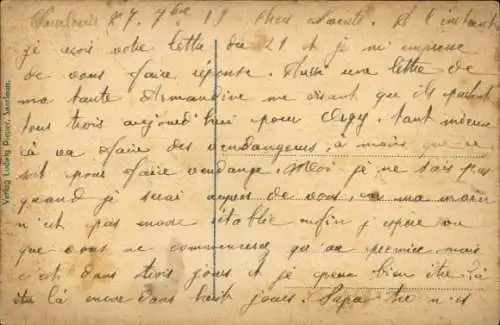 Sarrelouis 27 7bre 19 Chers Parents. A l'instant
je reçois votre lettre du 21 et je m'empresse
de vous faire réponse. Aussi une lettre de
ma tante Armandine me disant que ils partent
tous trois aujourd'hui pour Clugy. tant mieux
là va faire des vendangeurs, a moins que ce
soit pour faire vendange. Moi je ne sais pas
quand je serai auprès de vous, ma main
n'est pas encore établie enfin j'espère
que vous ne commencerez qu'au premier mais
c'est dans trois jours et je peux bien être là
être là encore dans huit jours. Papa tu n'es
Verlag Ludwig Pieper, Saarlouis.